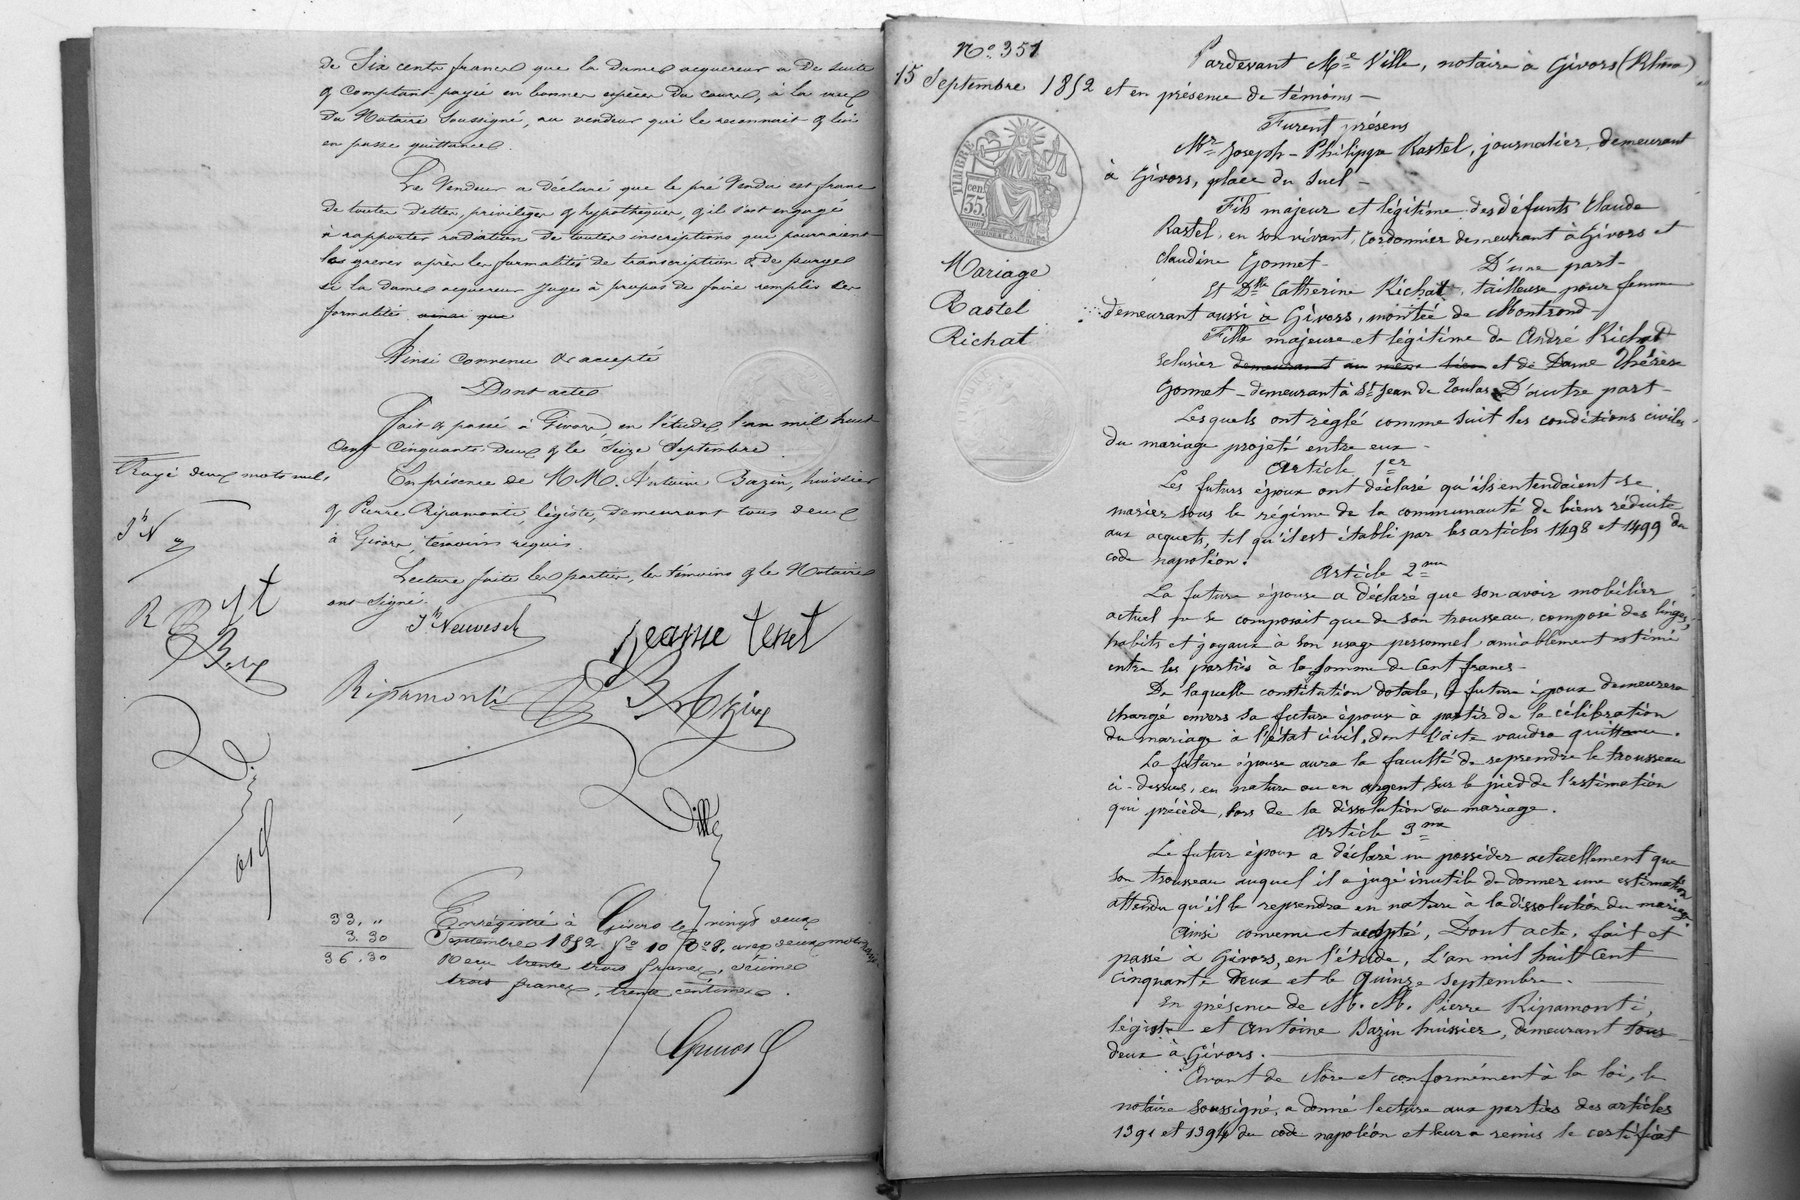 de Six cents francs que la dame acquéreur a de suite
& comptant payée en bonnes espèces du cours, à la vue
du Notaire soussigné, au vendeur qui le reconnait & lui
en passe quittance.
Le Vendeur a déclaré que le pré Vendu est franc
de toutes dettes, privilèges & hypothèques, & il s'est engagé
à rapporter radiation de toutes inscriptions qui pourraient
les grever après les formalités de transcription & de purge
si la dame acquéreur juge à propos de faire remplir ces
formalités. ainsi que
Ainsi convenu & accepté
Dont acte
Fait & passé à Givors, en l'étude l'an mil huit
cent cinquante-deux & le Seize Septembre.
En présence de M.M. Antoine Bazin, huissier
& Pierre Ripamonti, légiste, demeurant tous deux
à Givors, témoins requis.
Lecture faite les parties, les témoins & le Notaire
ont signé.
Rayé deux mots nuls
Jh N
R
Jh Neuvesel
jeanne tenet
Ripamonti
Bazin
Ville
33. "
3. 30
36. 30
Enrégistré à Givors le vingt deux
Septembre 1852 fo 10 Ro 8, avec deux mots rayés
Reçu trente trois francs, décime
trois francs, trente centimes.
No 351
15 Septembre 1852
TIMBRE
35 cen.
Mariage
Rastel
Richat
Pardevant Me Ville, notaire à Givors (Rhône)
et en présence de témoins —
Furent présens
Mr Joseph-Philippe Rastel, journalier, demeurant
à Givors, place du Suel —
Fils majeur et légitime des défunts Claude
Rastel, en son vivant, Cordonnier demeurant à Givors et
Claudine Gonnet - D'une part -
Et Dlle Catherine Richat, tailleuse pour femme
demeurant aussi à Givors, montée de Montrond -
Fille majeure et légitime de André Richat
éclusier demeurant au même lieu et de Dame Thérèse
Gonnet - demeurant à St Jean de Toulas D'autre part -
Lesquels ont règlé comme suit les conditions civiles
du mariage projeté entre eux -
Article 1er
Les futurs époux ont déclaré qu'ils entendaient se
marier sous le régime de la communauté de biens réduite
aux acquets, tel qu'il est établi par les articles 1498 et 1499 du
code napoléon.
Article 2me
La future épouse a déclaré que son avoir mobilier
actuel ne se composait que de son trousseau, composé des linges,
habits et joyaux à son usage personnel, amiablement estimé
entre les parties à la somme de Cent francs -
De laquelle constitution dotale, le futur époux demeurera
chargé envers sa future épouse à partir de la célébration
du mariage à l'état civil, dont l'acte vaudra quittance.
La future épouse aura la faculté de reprendre le trousseau
ci-dessus, en nature ou en argent sur le pied de l'estimation
qui précède, lors de la dissolution du mariage.
Article 3me
Le futur époux a déclaré ne posséder actuellement que
son trousseau auquel il a jugé inutile de donner une estimation
attendu qu'il le reprendra en nature à la dissolution du mariage
Ainsi convenu et accepté, Dont acte, fait et
passé à Givors, en l'étude, L'an mil huit Cent
cinquante deux et le quinze septembre.
En présence de M. M. Pierre Ripamonti,
légiste et Antoine Bazin huissier, demeurant tous
deux à Givors.
Avant de clore et conformément à la loi, le
notaire soussigné, a donné lecture aux parties des articles
1391 et 1394 du code napoléon et leur a remis le certificat